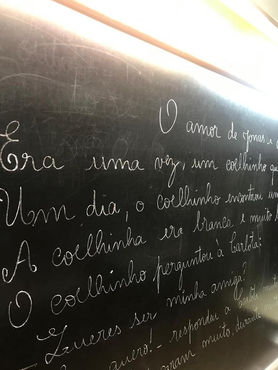 O amor de Jonas e
Era uma vez, um coelhinho que
Um dia, o coelhinho encontrou uma
A coelhinha era branca e muito
O coelhinho perguntou à Carlota:
- Queres ser minha amiga?
quero! - respondeu a
muito, durante